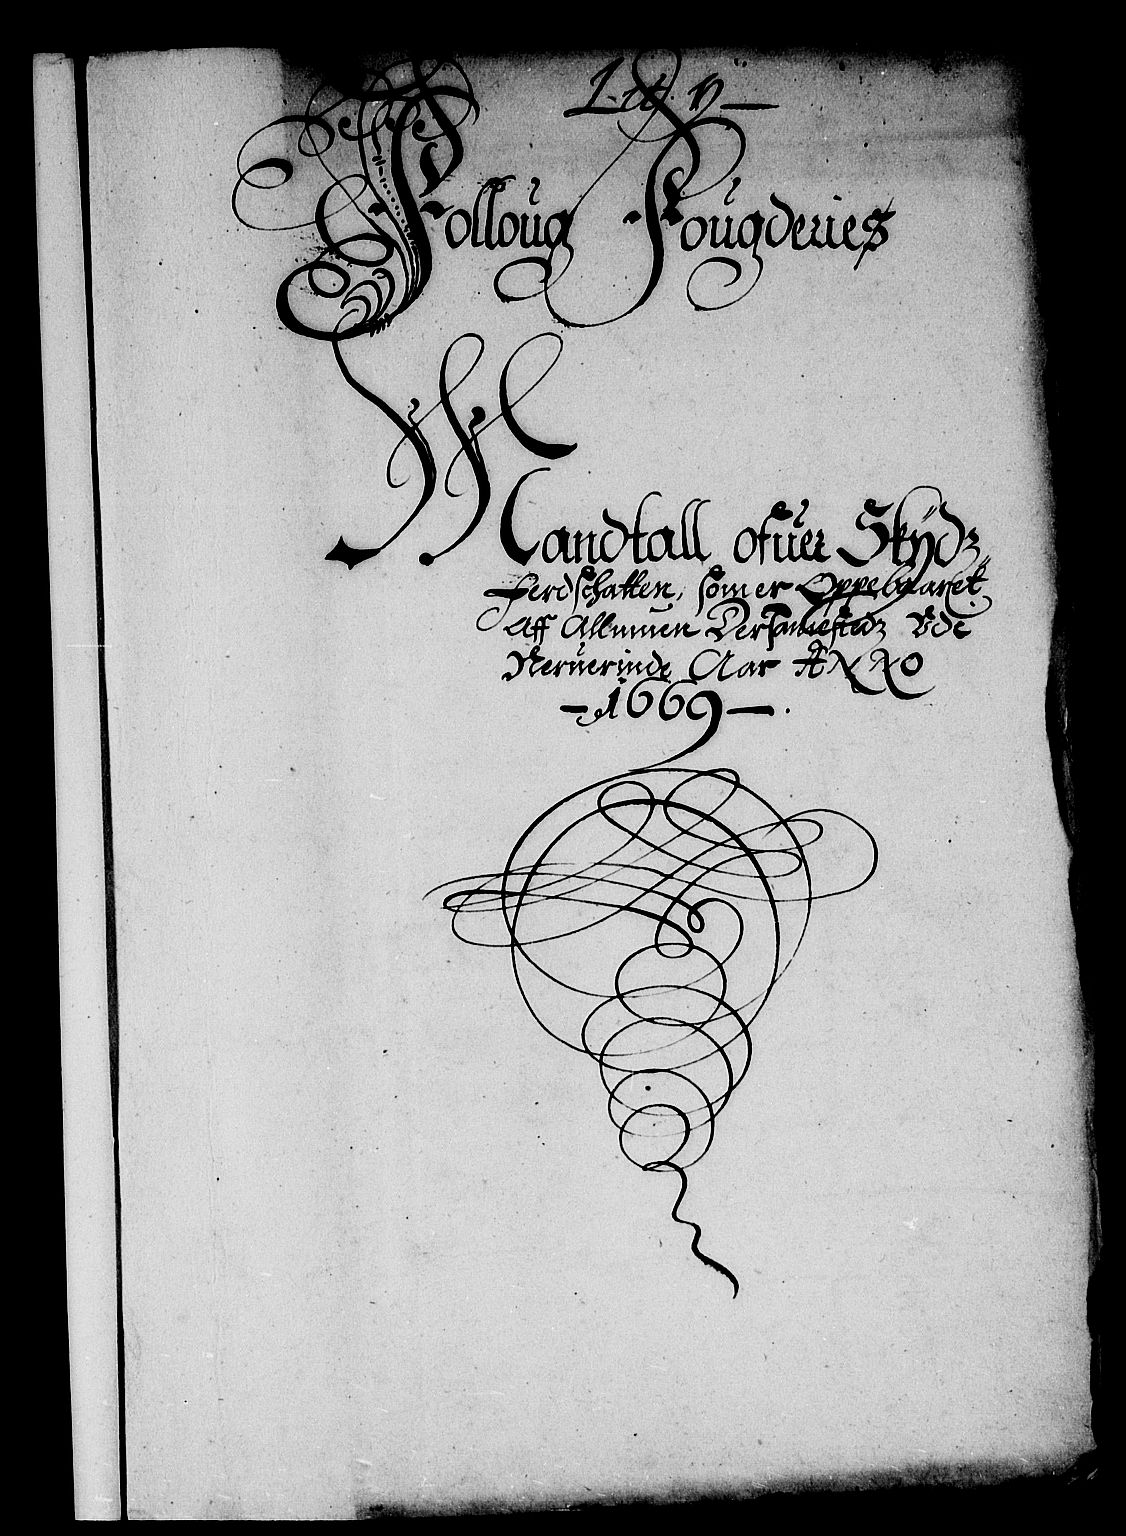 Lit. D
Folloug Fougderies
Mandtall ofuer Skydz
ferdschatten, som er Oppebaaret
Aff Allmuen Dersammestedz Vdi
Neruerinde Aar ANNO
1669